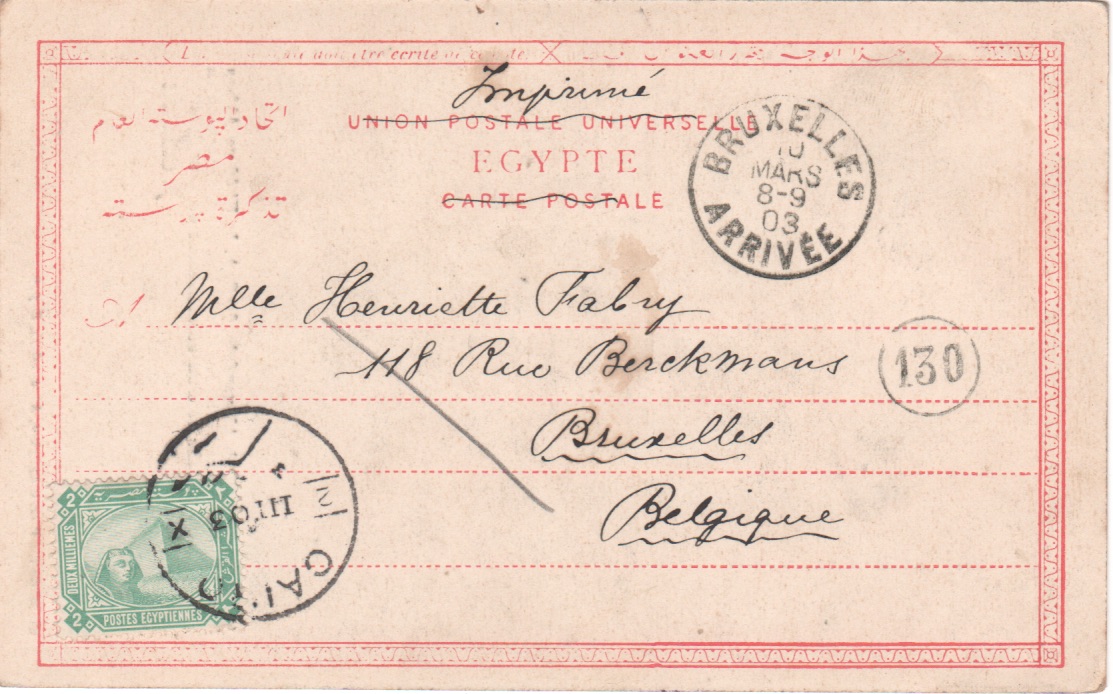 être écrite
Imprimé
UNION POSTALE UNIVERSELLE
اتحاد البوستة العام
EGYPTE
مصر
CARTE POSTALE
تذكرة بوستة
BRUXELLES
10
MARS
8-9
03
ARRIVÉE
Mlle Henriette Fabry
118 Rue Berckmans
130
Bruxelles
Belgique
CAIRO
III 03
IX
2
2
2
DEUX MILLIEMES
POSTES EGYPTIENNES